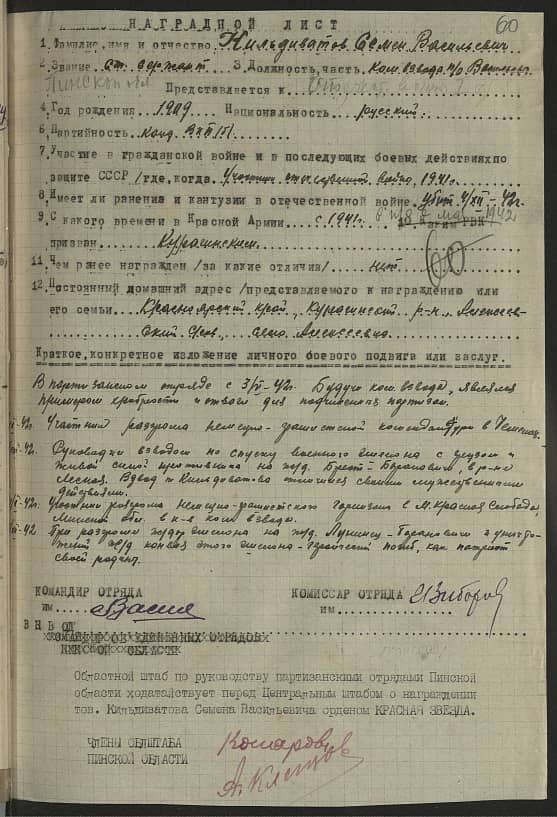 60
НАГРАДНОЙ ЛИСТ
1. Фамилие, имя и отчество Кильдиватов Семен Васильевич
2. Звание ст. сержант 3. Должность, часть. Ком. взвода п/о
Пинской обл Представляется к
4. Год рождения 1909 Национальность русский
6. Партийность канд. ВКП/б/
7. Участие в гражданской войне и в последующих боевых действиях по
защите СССР /где, когда. Участник отечественной войны, 1941 г.
8. Имеет ли ранения и кантузии в отечественной войне убит 4/XII-42г.
9. С какого времени в Красной Армии с 1941 г. 1942
призван Курагинским
11. Чем ранее награжден /за какие отличия/ нет
12. Постоянный домашний адрес /представляемого к награждению или
его семьи. Красноярский край, Курагинский р-н, Алексеев-
ский с/сов., село Алексеевка
Краткое, конкретное изложение личного боевого подвига или заслуг.
В партизанском отряде с 42г. Будучи ком. взвода, являлся
примером храбрости и отваги для подчиненных партизан.
42г. Участник разгрома немецко-фашистской комендатуры в
42г. Руководил взводом по спуску военного эшелона с грузом и
живой силой противника на ж/д. Брест-Баранович, в р-не
Лесная. Взвод и Кильдиватова отличился своими мужественными
действиями.
42г. Участник разгрома немецко-фашистского гарнизона в м. Красная Слобода,
Минской обл. в к-ве ком. взвода.
42 При разгроме эшелона на ж/д. Лунинец-Баранович и
конвоя этого эшелона - геройски погиб, как патриот
своей родины.
КОМАНДИР ОТРЯДА КОМИССАР ОТРЯДА
им. им.
Областной штаб по руководству партизанскими отрядами Пинской
области ходатайствует перед Центральным штабом о награждении
тов. Кильдиватова Семена Васильевича орденом КРАСНАЯ ЗВЕЗДА.
ЧЛЕНЫ ОБЛШТАБА Комаров
ПИНСКОЙ ОБЛАСТИ А. Клещов